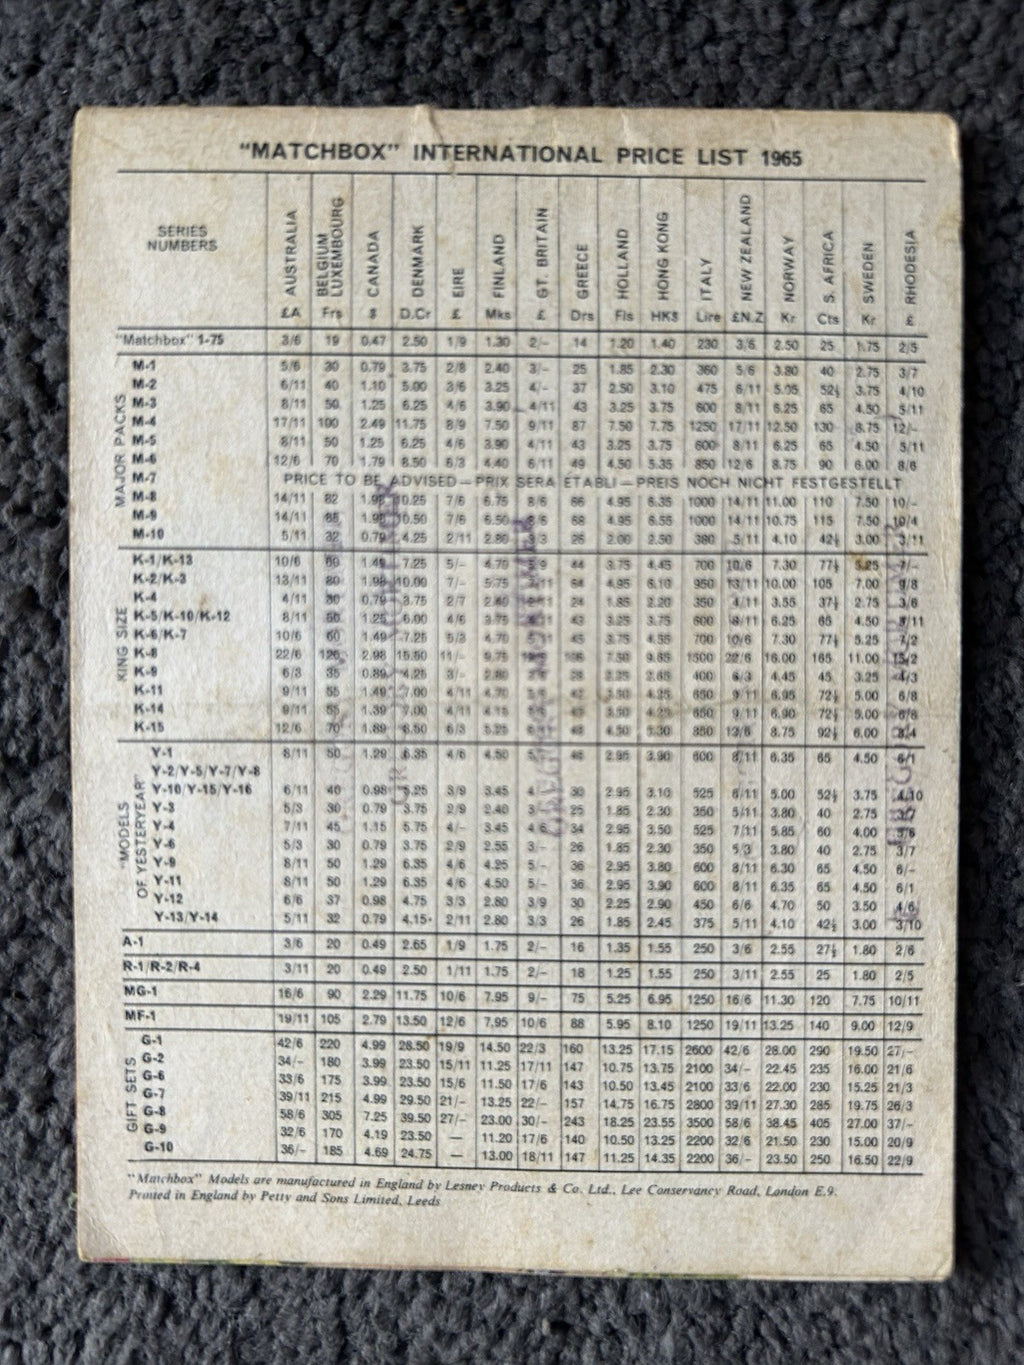 "MATCHBOX" INTERNATIONAL PRICE LIST 1965
SERIES NUMBERS AUSTRALIA BELGIUM LUXEMBOURG CANADA DENMARK EIRE FINLAND GT. BRITAIN GREECE HOLLAND HONG KONG ITALY NEW ZEALAND NORWAY S. AFRICA SWEDEN RHODESIA
£A Frs $ D.Cr £ Mks £ Drs Fls HK$ Lire £N.Z Kr Cts Kr £
"Matchbox" 1-75 3/6 19 0.47 2.50 1/9 1.30 2/- 14 1.20 1.40 230 3/6 2.50 25 1.75 2/5
MAJOR PACKS
M-1 5/6 30 0.79 3.75 2/8 2.40 3/- 25 1.85 2.30 360 5/6 3.80 40 2.75 3/7
M-2 6/11 40 1.10 5.00 3/6 3.25 4/- 37 2.50 3.10 475 6/11 5.05 52½ 3.75 4/10
M-3 8/11 50 1.25 6.25 4/6 3.90 4/11 43 3.25 3.75 600 8/11 6.25 65 4.50 5/11
M-4 17/11 100 2.49 11.75 8/9 7.50 9/11 87 7.50 7.75 1250 17/11 12.50 130 8.75 12/-
M-5 8/11 50 1.25 6.25 4/6 3.90 4/11 43 3.25 3.75 600 8/11 6.25 65 4.50 5/11
M-6 12/6 70 1.79 8.50 6/3 4.40 6/11 49 4.50 5.35 850 12/6 8.75 90 6.00 8/6
M-7 PRICE TO BE ADVISED—PRIX SERA ETABLI—PREIS NOCH NICHT FESTGESTELLT
M-8 14/11 82 1.98 10.25 7/6 6.75 8/6 66 4.95 6.35 1000 14/11 11.00 110 7.50 10/-
M-9 14/11 85 1.98 10.50 7/6 6.50 68 4.95 6.55 1000 14/11 10.75 115 7.50 10/4
M-10 5/11 32 0.79 4.25 2/11 2.80 3/3 26 2.00 2.50 380 5/11 4.10 42½ 3.00 3/11
KING SIZE
K-1/K-13 10/6 60 1.49 7.25 5/- 4.70 44 3.75 4.45 700 10/6 7.30 77½ 5.25 7/-
K-2/K-3 13/11 80 1.98 10.00 7/- 5.75 64 4.95 6.10 950 13/11 10.00 105 7.00 9/8
K-4 4/11 30 0.79 3.75 2/7 2.40 24 1.85 2.20 350 4/11 3.55 37½ 2.75 3/6
K-5/K-10/K-12 8/11 50 1.25 6.00 4/6 3.75 43 3.25 3.75 600 8/11 6.25 65 4.50 5/11
K-6/K-7 10/6 60 1.49 7.25 5/3 4.70 45 3.75 4.55 700 10/6 7.30 77½ 5.25 7/2
K-8 22/6 2.98 15.50 11/- 9.75 7.50 9.65 1500 22/6 16.00 165 11.00 15/2
K-9 6/3 35 0.89 4.25 3/- 2.80 28 2.25 2.65 400 6/3 4.45 45 3.25 4/3
K-11 9/11 55 1.49 7.00 4/11 4.70 42 3.50 4.25 650 9/11 6.95 72½ 5.00 6/8
K-14 9/11 55 1.39 7.00 4/11 4.15 45 3.50 4.25 650 9/11 6.90 72½ 5.00 6/8
K-15 12/6 70 1.89 8.50 6/3 5.25 48 4.50 5.30 850 12/6 8.75 92½ 6.00 8/4
"MODELS OF YESTERYEAR"
Y-1 8/11 50 1.29 6.35 4/6 4.50 46 2.95 3.90 600 8/11 6.35 65 4.50 6/1
Y-2/Y-5/Y-7/Y-8
Y-10/Y-15/Y-16 6/11 40 0.98 5.25 3/9 3.45 30 2.95 3.10 525 6/11 5.00 52½ 3.75 4/10
Y-3 5/3 30 0.79 3.75 2/9 2.40 25 1.85 2.30 350 5/11 3.80 40 2.75 3/7
Y-4 7/11 45 1.15 5.75 4/- 3.45 4/6 34 2.95 3.50 525 7/11 5.85 60 4.00
Y-6 5/3 30 0.79 3.75 2/9 2.55 3/- 26 1.85 2.30 350 5/3 3.80 40 2.75 3/7
Y-9 8/11 50 1.29 6.35 4/6 4.25 5/- 36 2.95 3.80 600 8/11 6.30 65 4.50 6/-
Y-11 8/11 50 1.29 6.35 4/6 4.50 5/- 36 2.95 3.90 600 8/11 6.35 65 4.50 6/1
Y-12 6/6 37 0.98 4.75 3/3 2.80 3/9 30 2.25 2.90 450 6/6 4.70 50 3.50 4/6
Y-13/Y-14 5/11 32 0.79 4.15 2/11 2.80 3/3 26 1.85 2.45 375 5/11 4.10 42½ 3.00 3/10
A-1 3/6 20 0.49 2.65 1/9 1.75 2/- 16 1.35 1.55 250 3/6 2.55 27½ 1.80 2/6
R-1/R-2/R-4 3/11 20 0.49 2.50 1/11 1.75 2/- 18 1.25 1.55 250 3/11 2.55 25 1.80 2/5
MG-1 16/6 90 2.29 11.75 10/6 7.95 9/- 75 5.25 6.95 1250 16/6 11.30 120 7.75 10/11
MF-1 19/11 105 2.79 13.50 12/6 7.95 10/6 88 5.95 8.10 1250 19/11 13.25 140 9.00 12/9
GIFT SETS
G-1 42/6 220 4.99 28.50 19/9 14.50 22/3 160 13.25 17.15 2600 42/6 28.00 290 19.50 27/-
G-2 34/- 180 3.99 23.50 15/11 11.25 17/11 147 10.75 13.75 2100 34/- 22.45 235 16.00 21/6
G-6 33/6 175 3.99 23.50 15/6 11.50 17/6 143 10.50 13.45 2100 33/6 22.00 230 15.25 21/3
G-7 39/11 215 4.99 29.50 21/- 13.25 22/- 157 14.75 16.75 2800 39/11 27.30 285 19.75 26/3
G-8 58/6 305 7.25 39.50 27/- 23.00 30/- 243 18.25 23.55 3500 58/6 38.45 405 27.00 37/-
G-9 32/6 170 4.19 23.50 — 11.20 17/6 140 10.50 13.25 2200 32/6 21.50 230 15.00 20/9
G-10 36/- 185 4.69 24.75 — 13.00 18/11 147 11.25 14.35 2200 36/- 23.50 250 16.50 22/9
"Matchbox" Models are manufactured in England by Lesney Products & Co. Ltd., Lee Conservancy Road, London E.9.
Printed in England by Petty and Sons Limited, Leeds